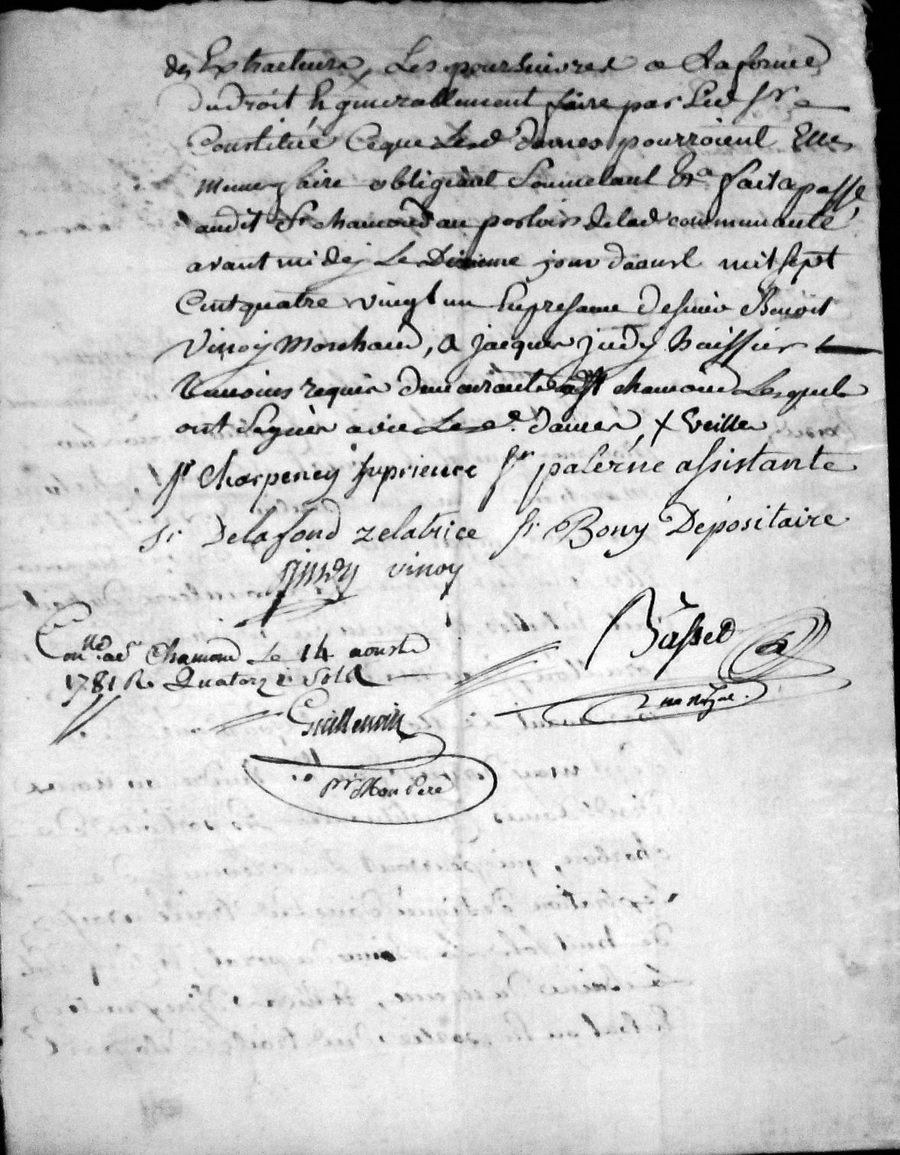 des Extracteurs, Les poursuivres a la forme
du droit & generallement faire par Led Sr
Constitué Ceque Lesd. dames pourroient Elles
memes faire obligeant Soumetant &a fait & passé
audit St chamond au parloir de lad communauté
avant midy Le Dixieme jour daoust mil Sept
Cent quatre vingt un En presence de sieur Benoit
Vinoy Marchand, & Jacques
temoins requis demeurants aud St chamond Lesquels
ont Signés avec Lesd. dames
Sr Charpeney Superieure Sr palerne assistante
Sr Delafond zelatrice Sr Bony Dépositaire
vinoy
Conllé a St Chamond Le 14 aoust
1781 R. Quatorze Sols
Basset
Guillemin
pr Mon Pere